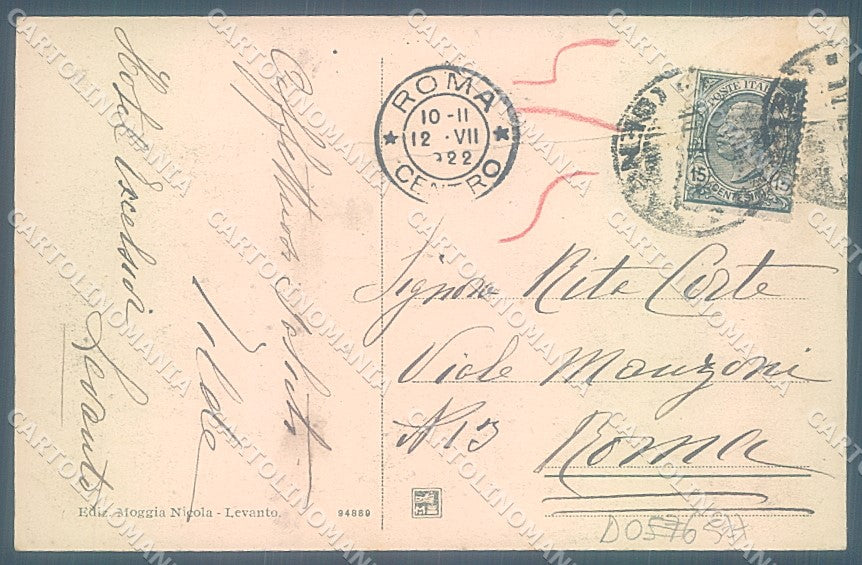 Hotel Excelsior Levanto
Affettuosi saluti
Ilde
ROMA
10-11
12 · VII
922
CENTRO
POSTE ITAL
15
CENTESIMI
Signora Rita Corte
Viale Manzoni
N 13
Roma
Ediz. Moggia Nicola - Levanto.
94889
CARTOLINOMANIA